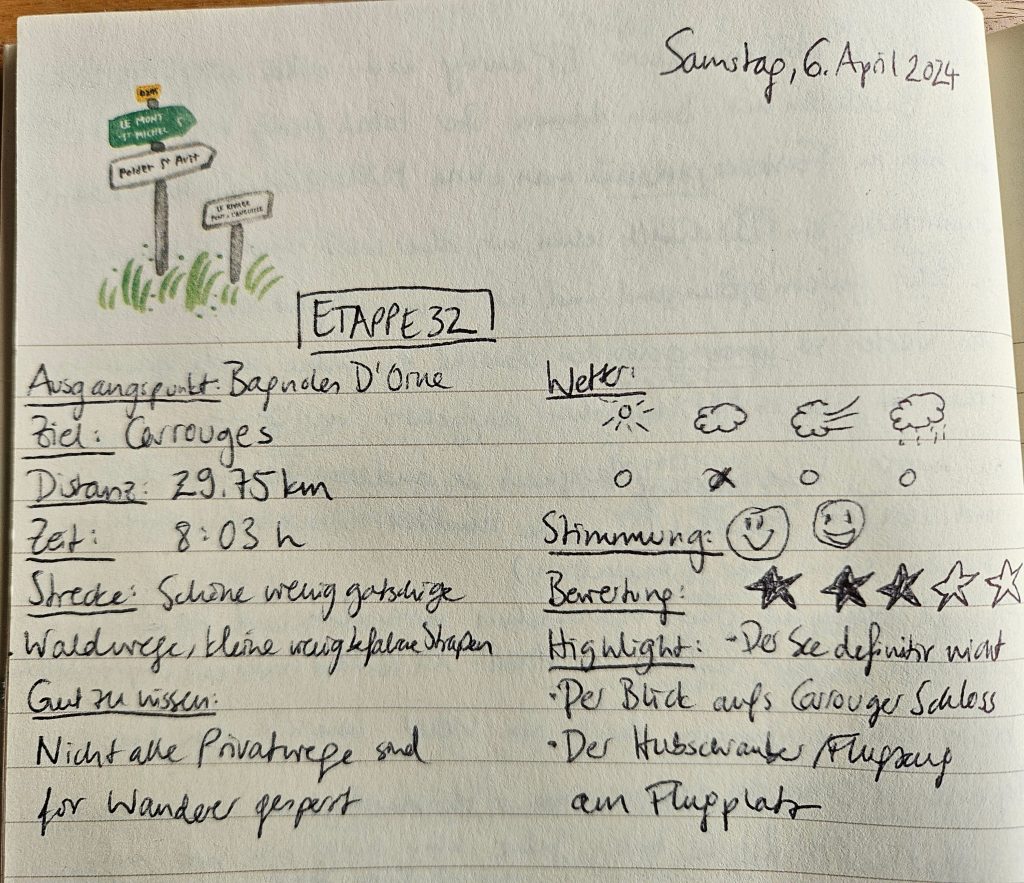 Samstag, 6. April 2024
D275
LE MONT
ST-MICHEL 5
Polder St Avit
LE RIVAGE
ETAPPE 32
Ausgangspunkt: Bagnoles D'Orne
Ziel: Carrouges
Distanz: 29.75 km
Zeit: 8:03 h
Strecke: Schöne wenig gatschige
Waldwege, kleine wenig befahrne Straßen
Gut zu wissen:
Nicht alle Privatwege sind
för Wanderer gesperrt
Wetter:
Stimmung:
Bewertung:
Highlight: - Der See definitiv nicht
· Der Blick aufs Carrouger Schloss
· Der Hubschrauber/Flugzeug
am Flugplatz